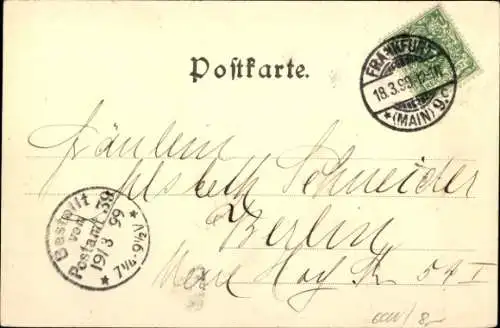 Postkarte.
FRANKFURT
18.3.99. 12-1N
* (MAIN) 9.
Fräulein
Elsbeth Schneider
Berlin
Neue Hoch Str. 54 I
Bestellt
vom
Postamt 39
19/3 99
* 7¼-9½V *